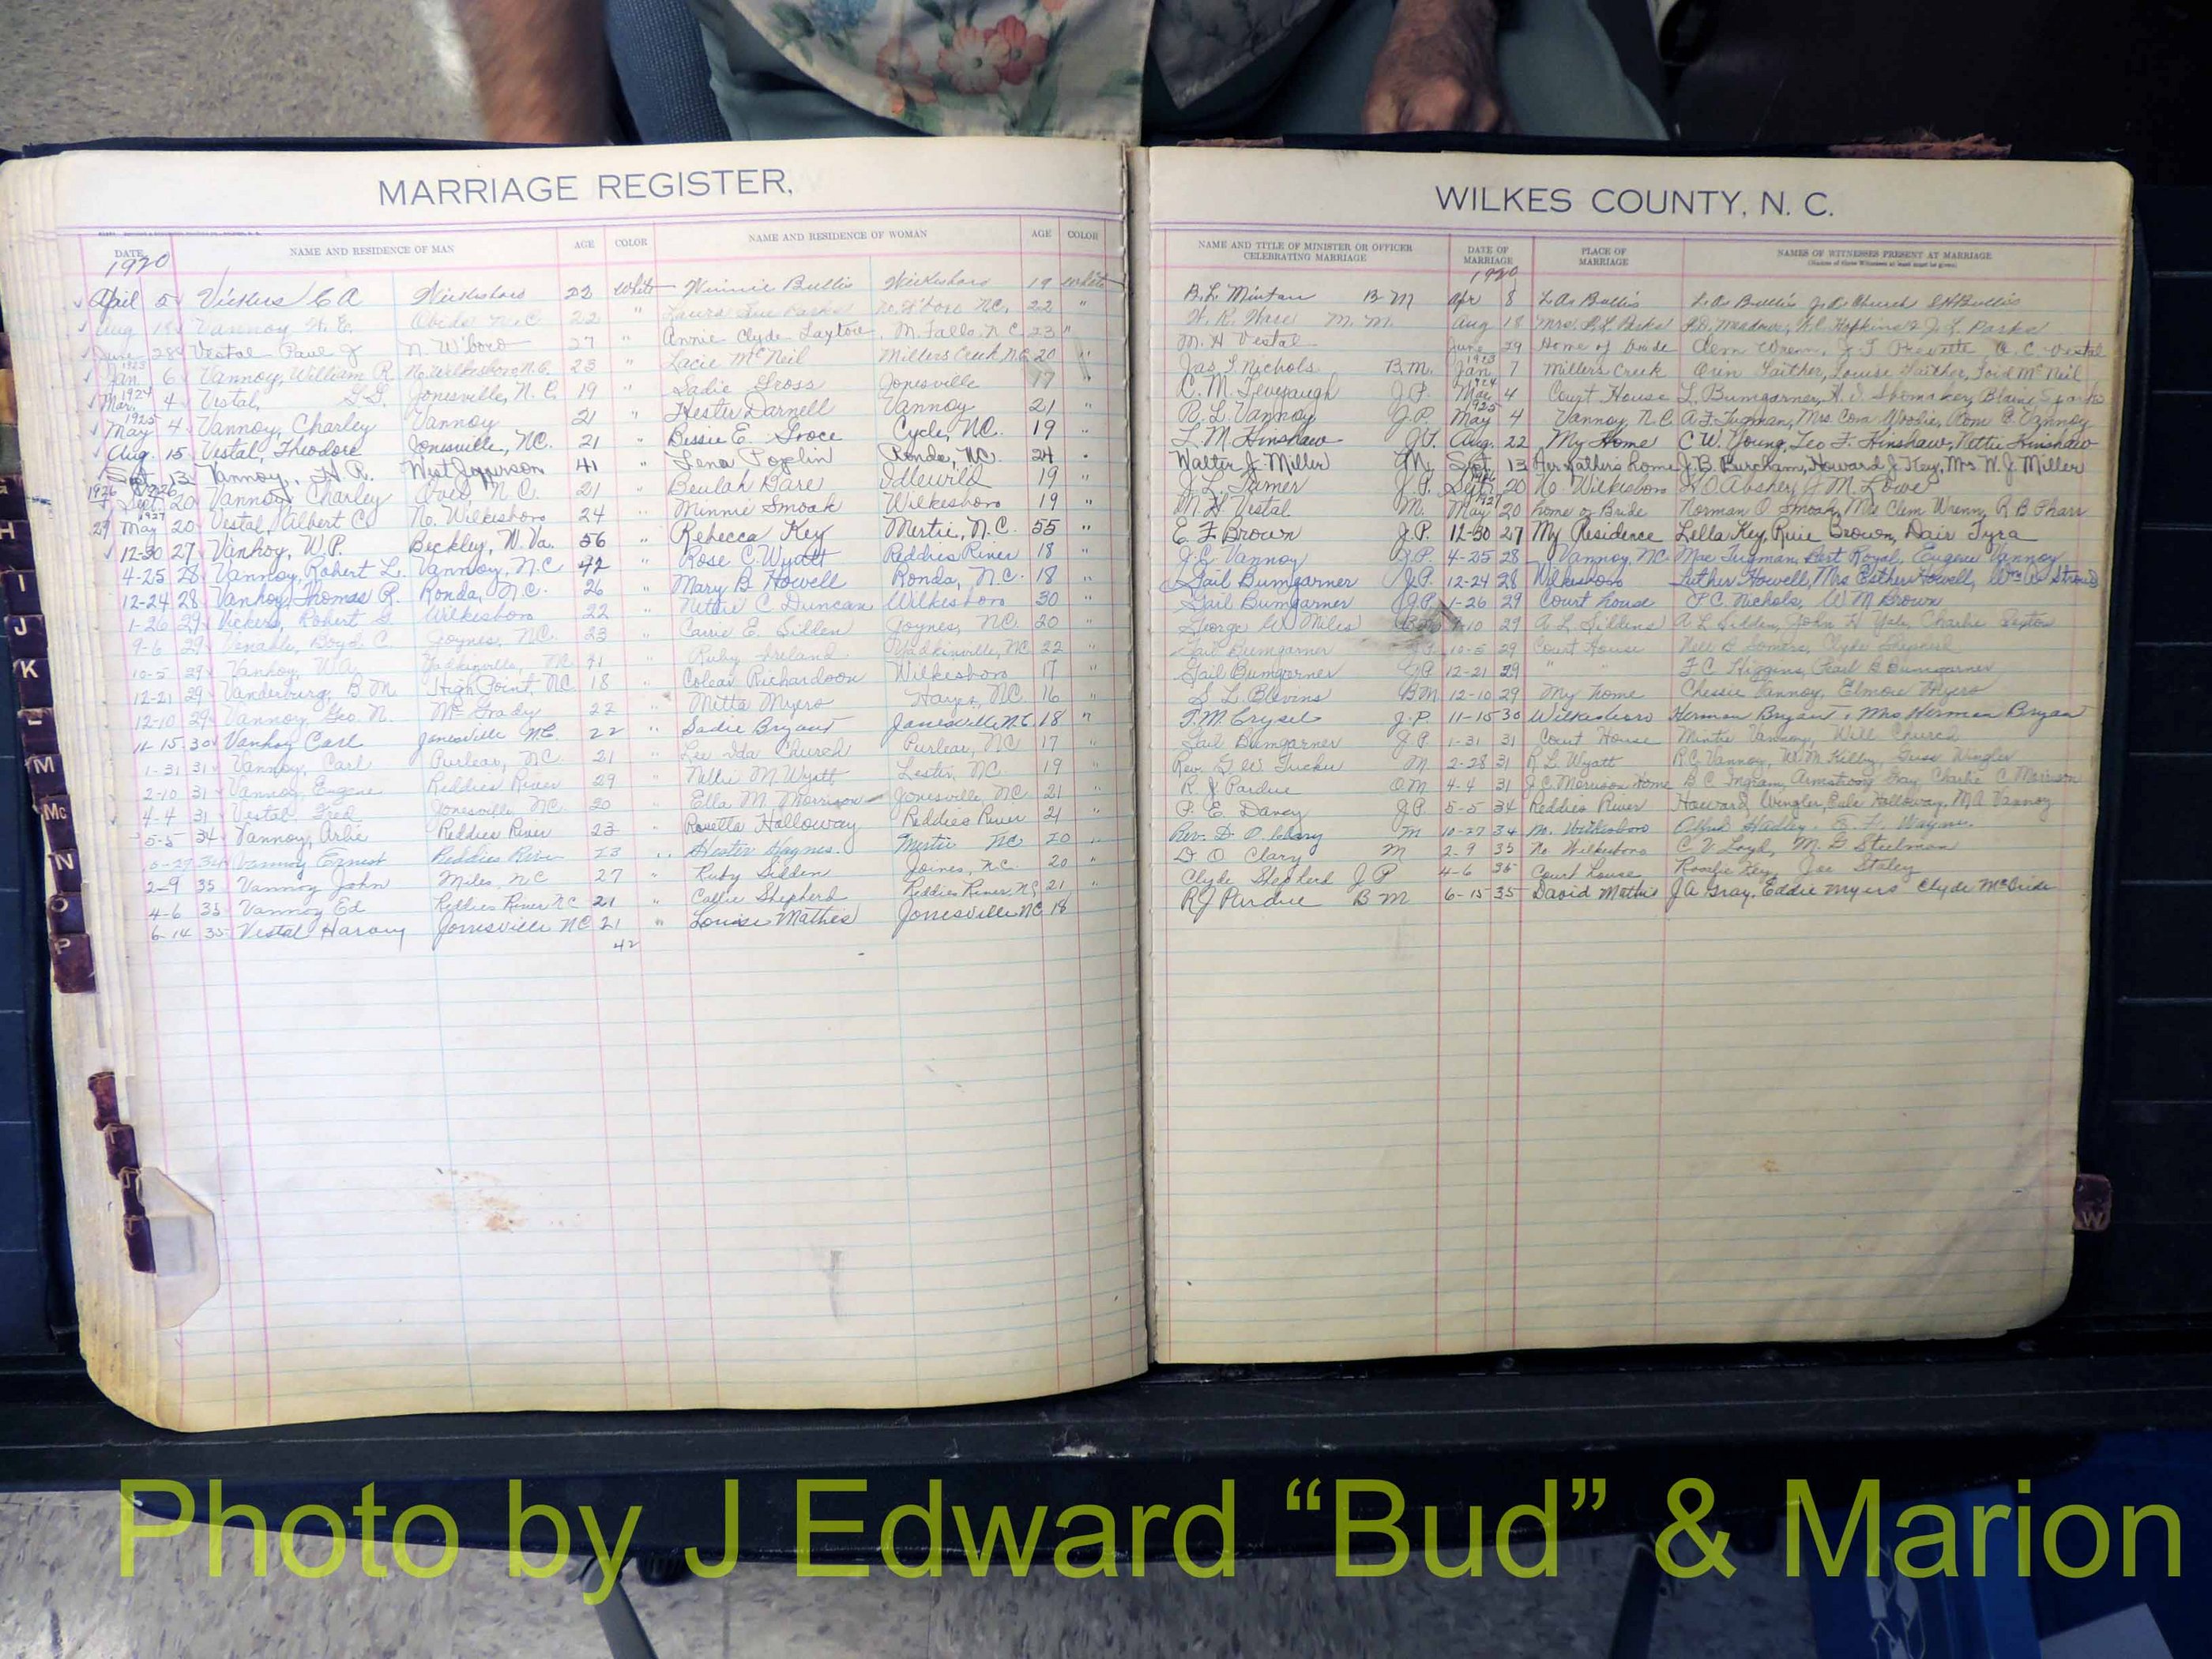 MARRIAGE REGISTER,
DATE NAME AND RESIDENCE OF MAN AGE COLOR NAME AND RESIDENCE OF WOMAN AGE COLOR
1920
April 5 Vickers C A Wilkesboro 22 White Minnie Bullis Wilkesboro 19 White
Aug 18 Vannoy H. E. Obids N.C 22 " Laura Sue Parks No. W'boro N.C. 22 "
June 28 Vestal Paul J N. W'boro 27 " Annie Clyde Layton M. Falls N C 23 "
1923
Jan. 6 Vannoy, William R. No. Wilkesboro, N.C. 23 " Lacie McNeil Millers Creek N.C. 20 "
1924
Mar. 4 Vestal, Jonesville, N.C. 19 " Sadie Gross Jonesville 17 "
1925
May 4 Vannoy, Charley Vannoy 21 " Hester Darnell Vannoy 21 "
Aug. 15 Vestal, Theodore Jonesville, N.C. 21 " Bessie E. Groce Cycle, N.C. 19 "
Sept. 13 Vannoy, H. R. West Jefferson 41 " Lena Poplin Ronda, N.C. 24 "
1926
Sept. 20 Vannoy, Charley N.C. 21 " Beulah Bare Idlewild 19 "
1927
29 May 20 Vestal, Albert C. No. Wilkesboro 24 " Minnie Smoak Wilkesboro 19 "
12-30 27 Vanhoy, W.P. Beckley, W. Va. 56 " Rebecca Key Mertie, N.C. 55 "
4-25 28 Vannoy, Robert L. Vannoy, N.C 42 " Rose C. Wyatt Reddies River 18 "
12-24 28 Vanhoy, Thomas R. Ronda, N.C. 26 " Mary B. Howell Ronda, N.C. 18 "
1-26 29 Vickers, Robert G. Wilkesboro 22 " Nettie C. Duncan Wilkesboro 30 "
9-6 29 Venable, Boyd C. Joynes, N.C. 23 " Carrie E. Sidden Joynes, N.C. 20 "
10-5 29 Vanhoy, W.A. Yadkinville, N. " Ruby Ireland Yadkinville, NC 22 "
12-21 29 Vanderburg, B. M. High Point, N.C 18 " Colean Richardson Wilkesboro 17 "
12-10 29 Vannoy, Geo. N. McGrady 22 " Mitta Myers Hayes, NC 16 "
11-15-30 Vanhoy Carl Jonesville N.C. 22 " Sadie Bryant Jonesville N.C 18 "
1-31 31 Vannoy, Carl Purlear, N.C. 21 " Lee Ida Church Purlear, NC 17 "
2-10 31 Vannoy, Eugene Reddies River 29 " Nellie M. Wyatt Lester, N.C. 19 "
4-4 31 Vestal Fred Jonesville, N.C. 20 " Ella M. Morrison Jonesville, N.C 21 "
5-5 34 Vannoy, Arlie Reddies River 23 " Rosetta Halloway Reddies River 21 "
34 Vannoy Ernest Reddies River 23 " Hester Haynes. Mertie N.C. 20 "
2-9 35 Vannoy John Miles, N.C 27 " Ruby Sidden Joines, N.C. 20 "
4-6 35 Vannoy Ed Reddies River NC 21 " Callie Shepherd Reddies River, NC 21 "
6-14 35 Vestal Harvy Jonesville NC 21 " Louise Mathes Jonesville NC 18
42
WILKES COUNTY, N. C.
NAME AND TITLE OF MINISTER OR OFFICER CELEBRATING MARRIAGE DATE OF MARRIAGE PLACE OF MARRIAGE NAMES OF WITNESSES PRESENT AT MARRIAGE
(Names of three Witnesses at least must be given)
1920
B. L. Minton B M Apr 8 L. A. Bullis L. A. Bullis J. A. Church S H Bullis
W. R. Ware M. M. Aug 18 Mrs. R. L. Parks P.D. Meadows, H. C. Hopkins & J. L. Parks
M. H Vestal June 29 Home of bride Clem Wrenn, J. T. Prevette A. C. Vestal
1923
Jas. T. Nichols B.M. Jan. 7 Millers Creek Orin Gaither, Louise Gaither, Loid McNeil
1924
C. M. J.P. Mar. 4 Court House L. Bumgarner, H. V. Shomaker, Blaine Sparks
1925
R. L. Vannoy J.P. May 4 Vannoy, N.C A. F. Tugman, Mrs. Cora Woodie, Rom C. Vannoy
L. M. Hinshaw J.P. Aug. 22 My Home C. W. Young, Leo F. Hinshaw, Nettie Hinshaw
Walter J. Miller M. Sept. 13 Her Fathers home J. B. Burcham, Howard J. Key, Mrs W. J. Miller
1926
J. L. Turner J.P. Sept. 20 No. Wilkesboro H. O. Absher J. M. Lowe
1927
M. H. Vestal M. May 20 home of Bride Norman O. Smoak, Mrs Clem Wrenn, R. B. Pharr
E. F. Brown J.P. 12-30 27 My Residence Lella Key, Ruie Brown, Dair Tyra
J. C. Vannoy J.P. 4-25 28 Vannoy, N.C Mae Tugman, Bert Royal, Eugene Vannoy
Gail Bumgarner J.P. 12-24 28 Wilkesboro Luther Howell, Mrs Esther Howell, Stroud
Gail Bumgarner J.P. 1-26 29 Court house P. C. Nichols, W M Brown
George W. Miles 10 29 A. L. Siddens A. L. Sidden, John H. Yale, Charlie Sexton
Gail Bumgarner J.P. 10-5 29 Court House Nell B. Somers, Clyde Shepherd
Gail Bumgarner J.P. 12-21 29 " " F. C. Higgins, Pearl B. Bumgarner
S. L. Blevins B.M. 12-10 29 My home Chessie Vannoy, Elmore Myers
T. M. Crysel J.P. 11-15 30 Wilkesboro Herman Bryant, Mrs Herman Bryan
Gail Bumgarner J P. 1-31 31 Court House Mintie Vannoy, Will Church
Rev. G. W. Tucker M 2-28 31 R. L. Wyatt R. C. Vannoy, W. M. Kilby, Wingler
R. J. Pardue O M 4-4 31 J. C. Morrison Home B. C. Ingram, Armstrong Gray, Charlie C. Morrison
P. E. Dancy J.P. 5-5 34 Reddies River Howard Wingler, Cale Halloway, M A Vannoy
Rev. D. O. Clary M 10-27 34 No. Wilkesboro Alfred Hadley. E. F. Wayne.
D. O. Clary M 2-9 35 No Wilkesboro C. V. Loyd, M. G. Steelman
Clyde Shepherd J P 4-6 35 Court house Rosalie Key, Joe Staley
R J Pardue B M 6-15 35 David Mathis J. A. Gray, Eddie Myers Clyde McBride
G
H
I
J
K
L
M
Mc
N
O
P
W
Photo by J Edward “Bud” & Marion